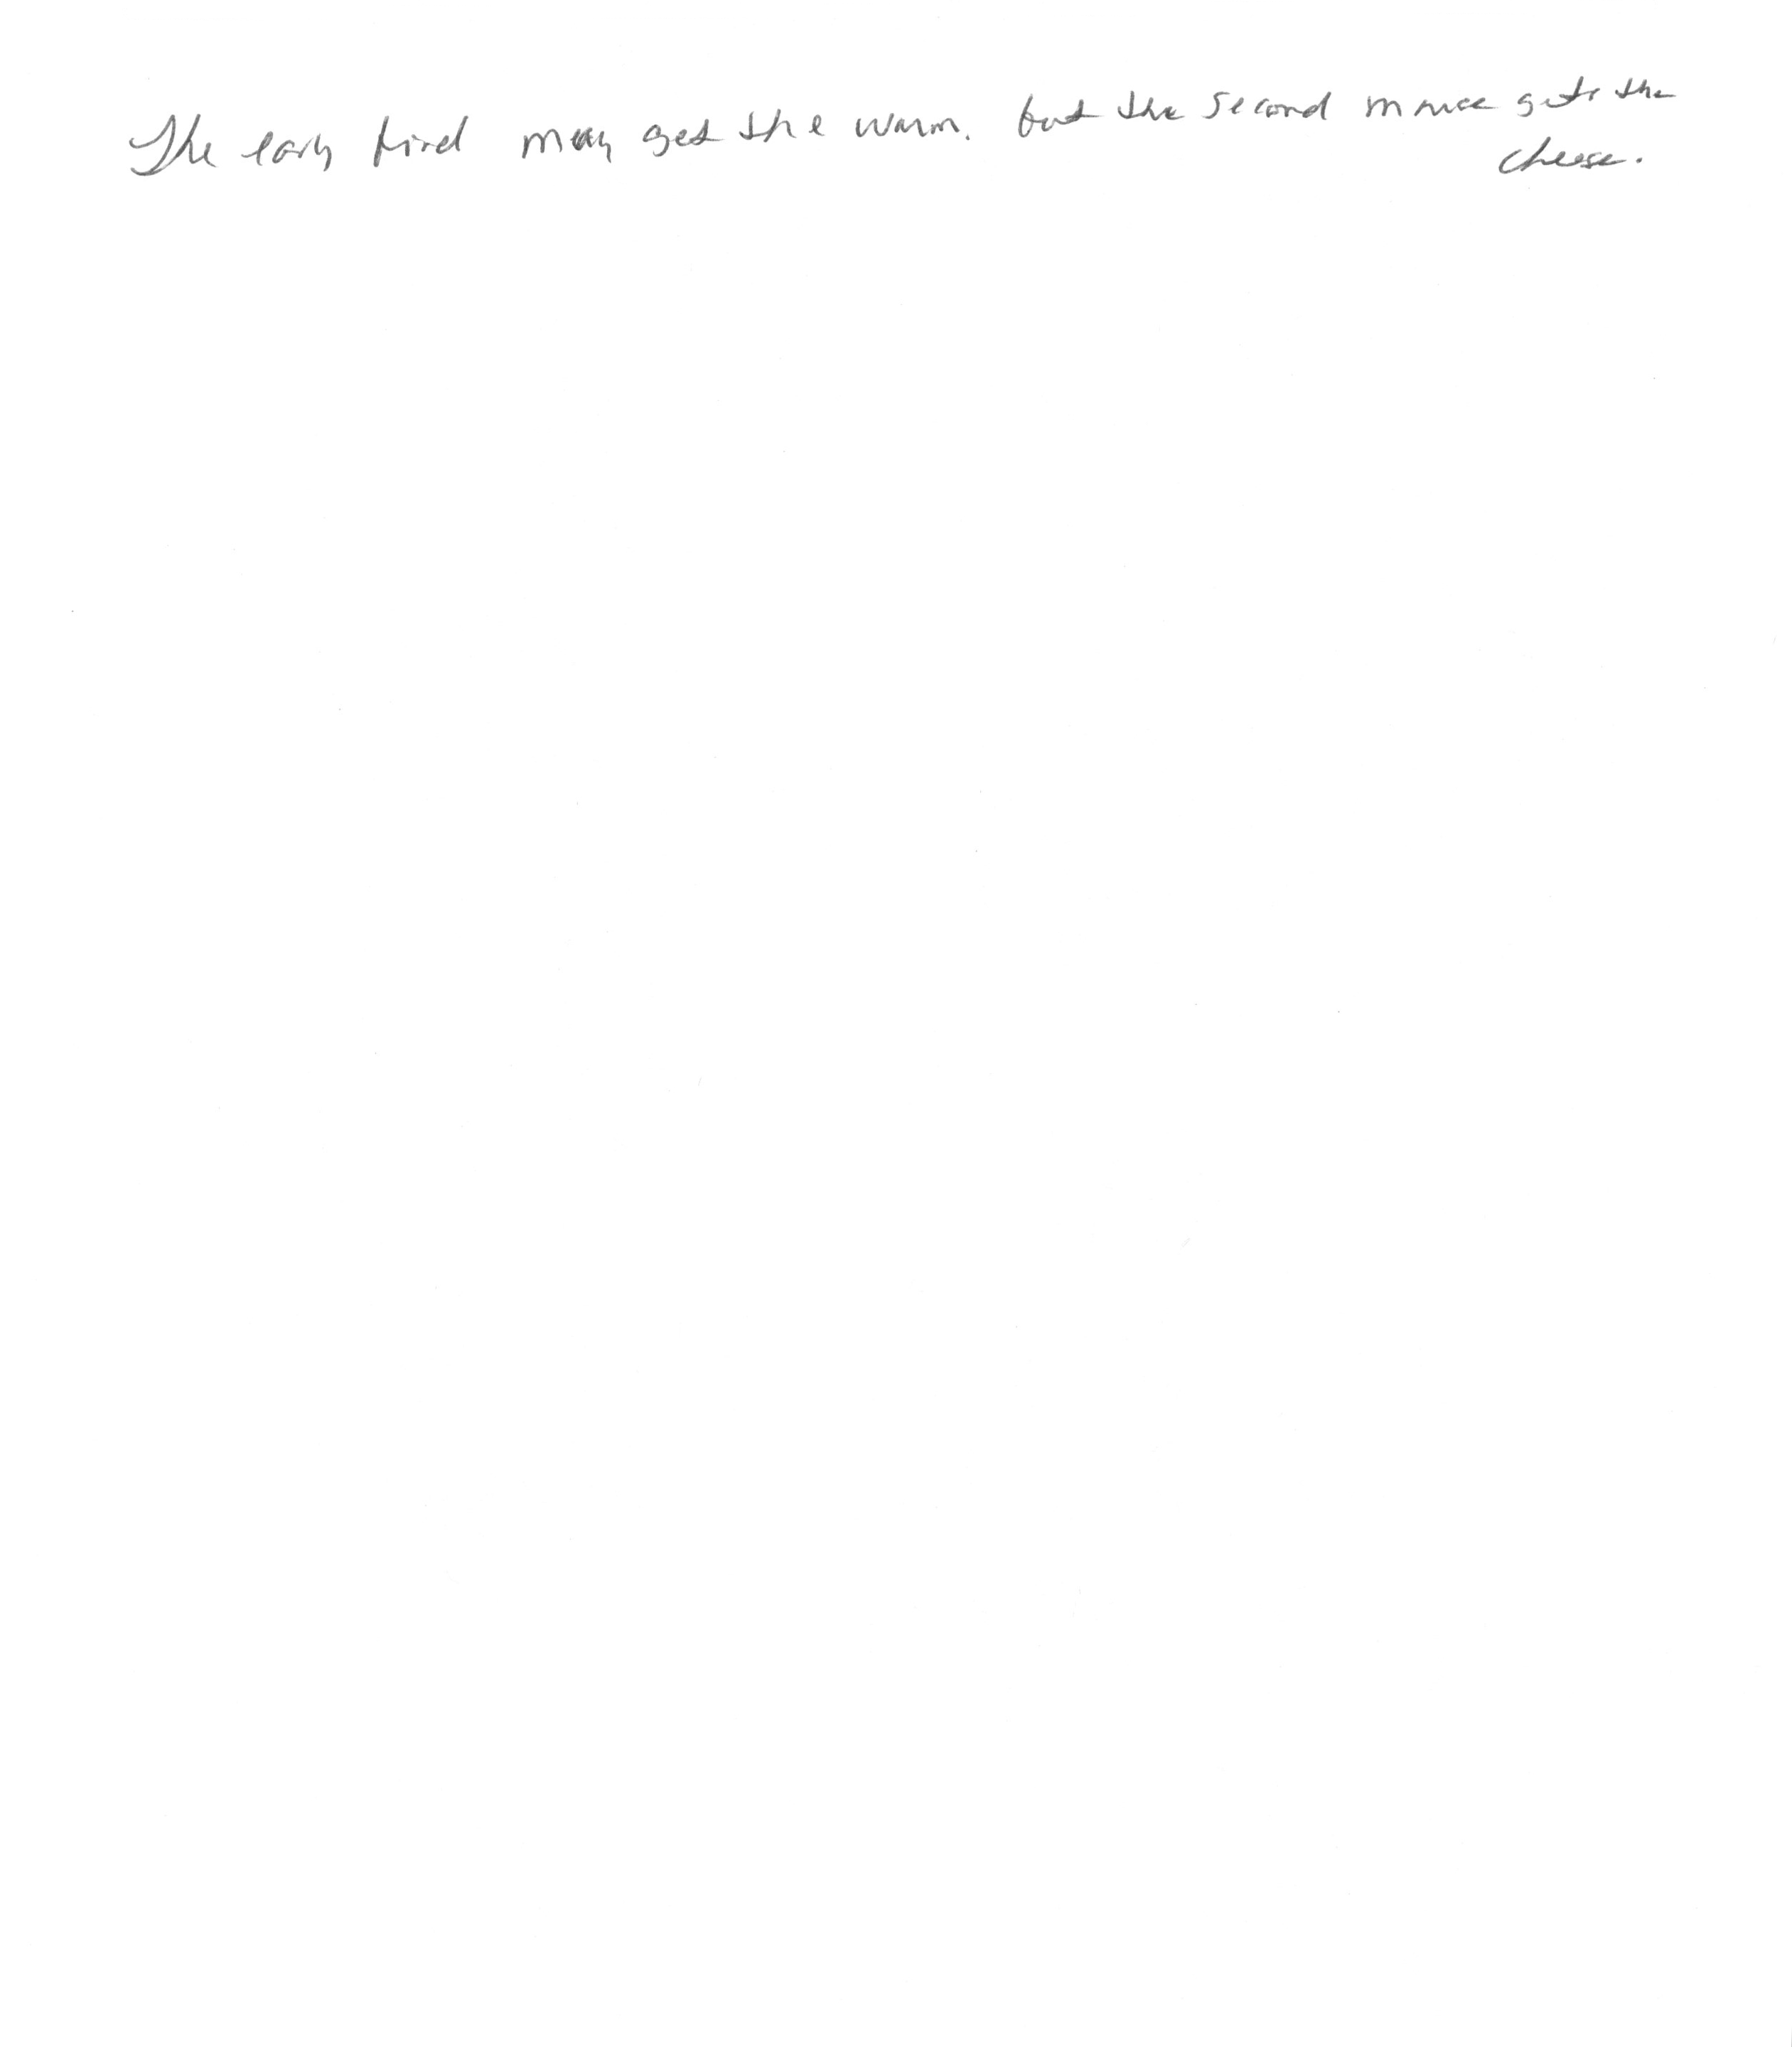 The early bird may get the worm. but the second mouse gets the
cheese.